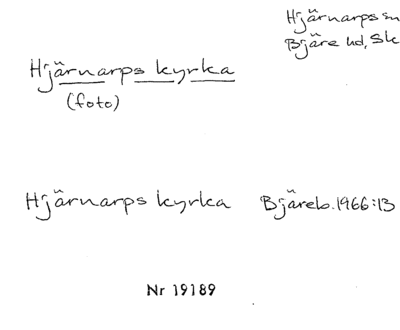 Hjärnarps sn
Bjäre hd, Sk
Hjärnarps kyrka
(foto)
Hjärnarps kyrka Bjäreb. 1966:13
Nr 19189